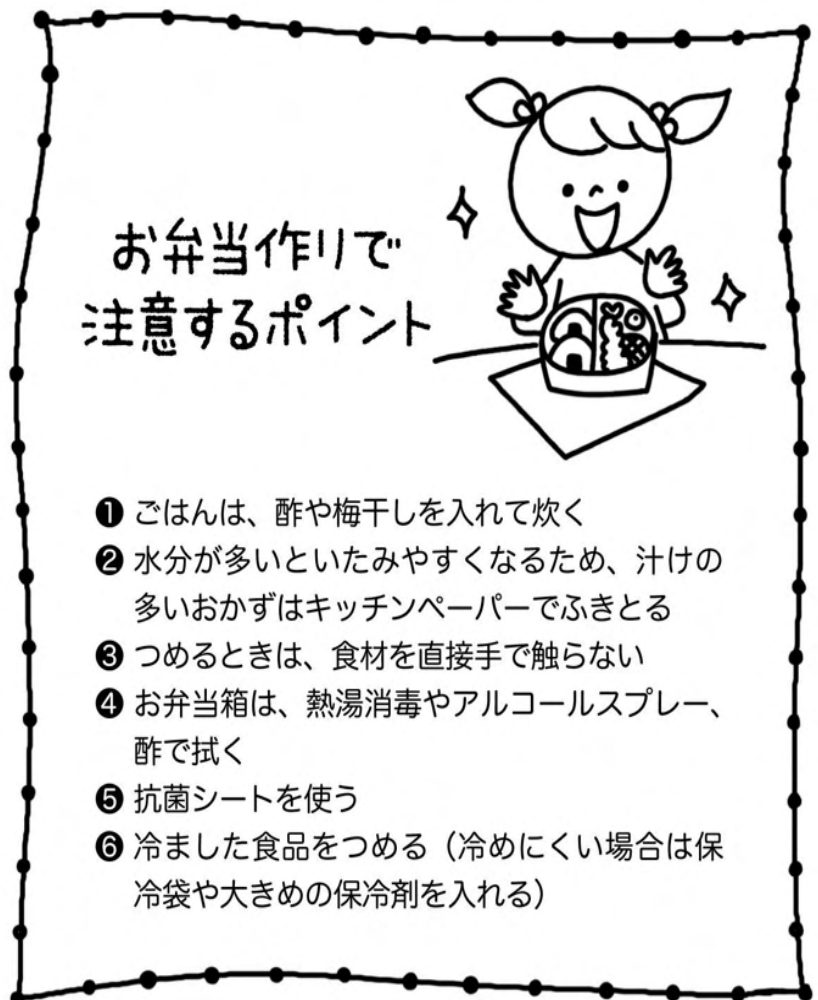 お弁当作りで
注意するポイント
❶ ごはんは、酢や梅干しを入れて炊く
❷ 水分が多いといたみやすくなるため、汁けの
多いおかずはキッチンペーパーでふきとる
❸ つめるときは、食材を直接手で触らない
❹ お弁当箱は、熱湯消毒やアルコールスプレー、
酢で拭く
❺ 抗菌シートを使う
❻ 冷ました食品をつめる（冷めにくい場合は保
冷袋や大きめの保冷剤を入れる）